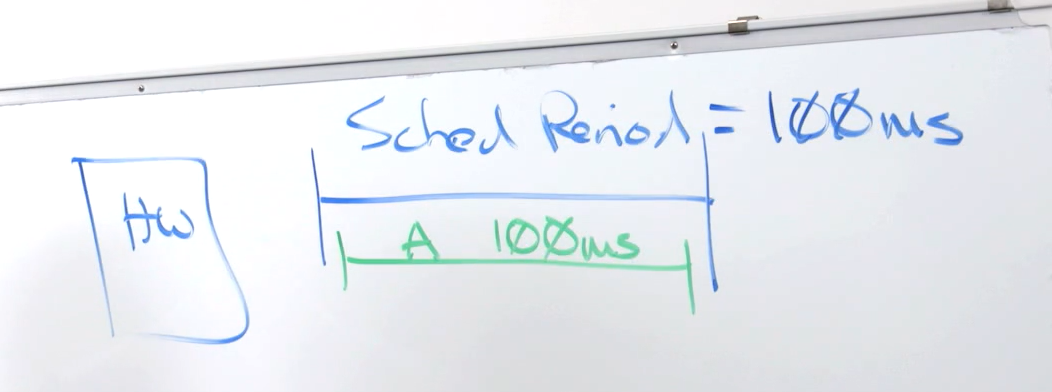 Sched Period = 100ms
HW
A 100ms